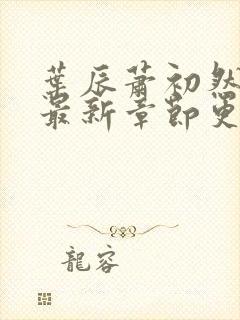 葉辰蕭初然
最新章節更
龍容